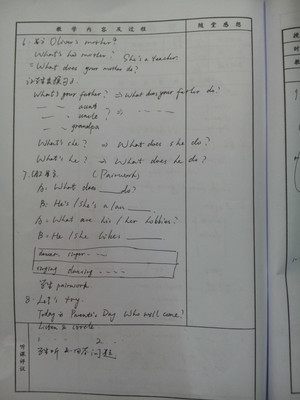 教 学 内 容 及 过 程
随 堂 感 悟
6. Oliver's mother?
What's his mother? She's a teacher.
= What does your mother do?
What's your father? => What does your father do?
— — aunt
— — uncle? => - - - -
— — grandpa
What's she? => What does she do?
What's he? => What does he do?
7. (Pairwork)
A: What does ___ do?
B: He's /She's a/an ___
A: What are his / her hobbies?
B: He /She likes ____
dancer singer - - -
singing dancing - - - -
学生 pairwork
8. Let's try.
Today is Parents' Day. Who will come?
Listen & circle
1. - - - - 2. - -
学生听
听课评议